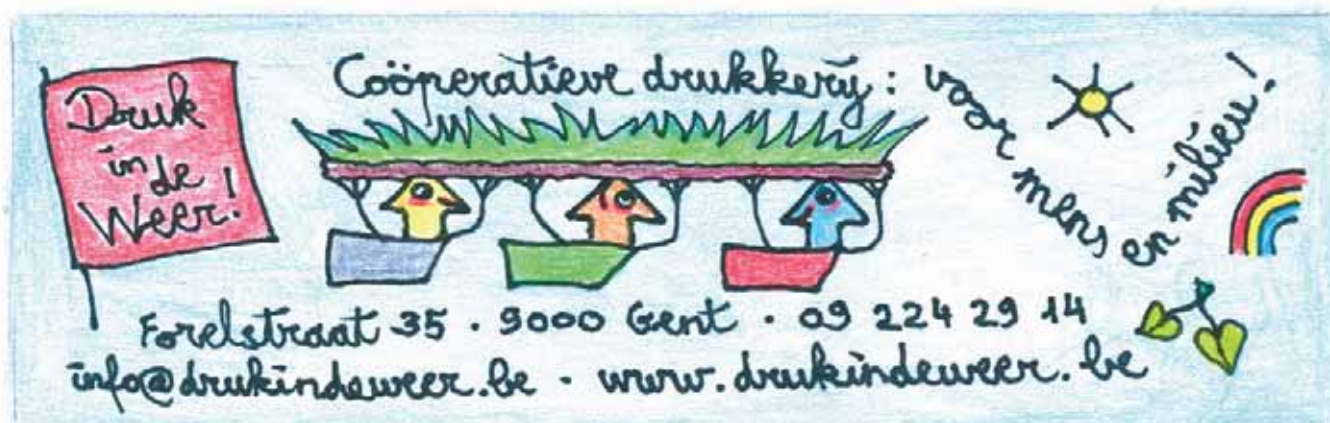 Druk
in
de
Weer!
Coöperatieve drukkery: voor mens en milieu!
Forelstraat 35 · 9000 Gent · 09 224 29 14
info@drukindeweer.be · www.drukindeweer.be